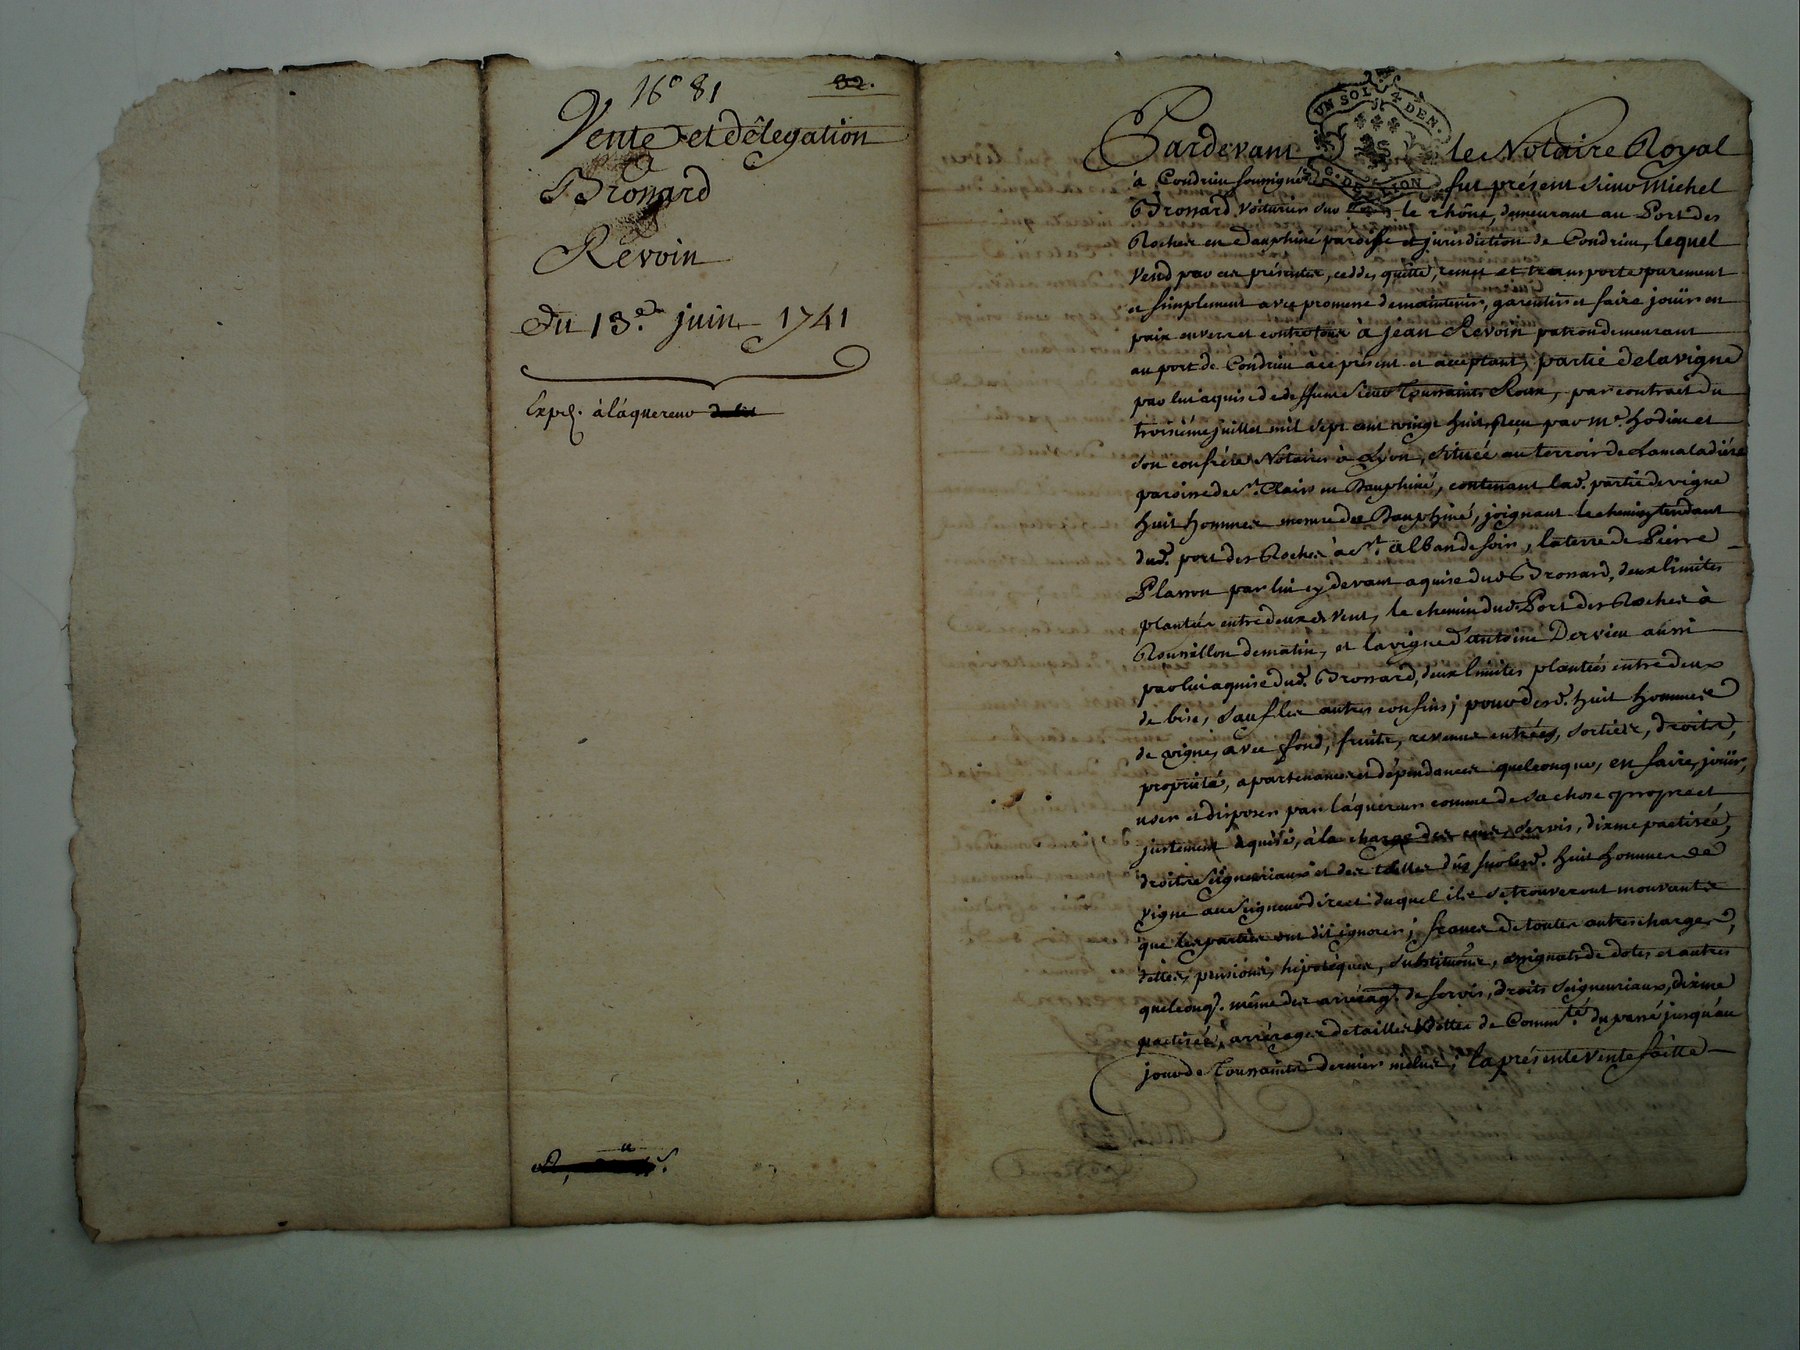 16° 81
82.
Vente et délégation
Brossard
Revoin
Du 13.e juin 1741
Exp. à l'aquereur
UN SOL 4 DEN.
G. DE LION
Pardevant le Notaire Royal
à Condrieu soussigné fut présent sieur Michel
Brossard voiturier sur le rhône, demeurant au Port des
Roches en Dauphiné paroisse et jurisdiction de Condrieu, lequel
vend par ces présentes, cedde, quitte, remet et transporte purement
et simplement avec promesse de maintenir, garentir et faire joüir en
paix envers et contre tous à jean Revoin patron demeurant
au port de Condrieu àce présent et acceptant, partie de la vigne
par lui aquise de deffunt sieur Toussaints Roux, par contrait du
troisième juillet mil sept cent vingt huit, Reçu par me. hodieu et
son confrére Notaires à Lyon, située au terroir de Lamaladiére
paroisse de st. Clair en Dauphiné, contenant lad. partie de vigne
huit hommes mesure de Dauphiné, joignant le chemin tendant
dud. port des Roches à st. alban de soir, la terre de Pierre
Plasson par lui cy devant aquise dud Brossard, deux limites
plantées entre deux de vent, le chemin dud. Port des Roches à
Roussillon de matin, et la vigne d'antoine Dervieu aussi
par lui aquise dud. Brossard, deux limites plantées entre deux
de bise, sauf les autres confins; pour desd. huit hommes
de vigne, avec fond, fruits, revenus entrées, sorties, droits,
propriété, apartenances et dépendances quelconques, en faire, joüir,
user et disposer par l'aquereur comme de sa chose propre et
justement aquise, à la charge des servis, dixme pactisée,
droits seigneuriaux et des tailles dûs sur lesd. huit hommes de
vigne au seigneur direct duquel ils se trouveront mouvants
que les parties ont dit ignorer; francs de toutes autres charges,
dettes, pensions, hipotéques, substituôns, assignats de dotes et autres
quelconq. même des arrérag. de servis, droits seigneuriaux, dixme
pactisée, arrérages de tailles & dettes de Commté. du passé jusqu'au
jour de Toussaints dernier inclus; la présente vente faitte